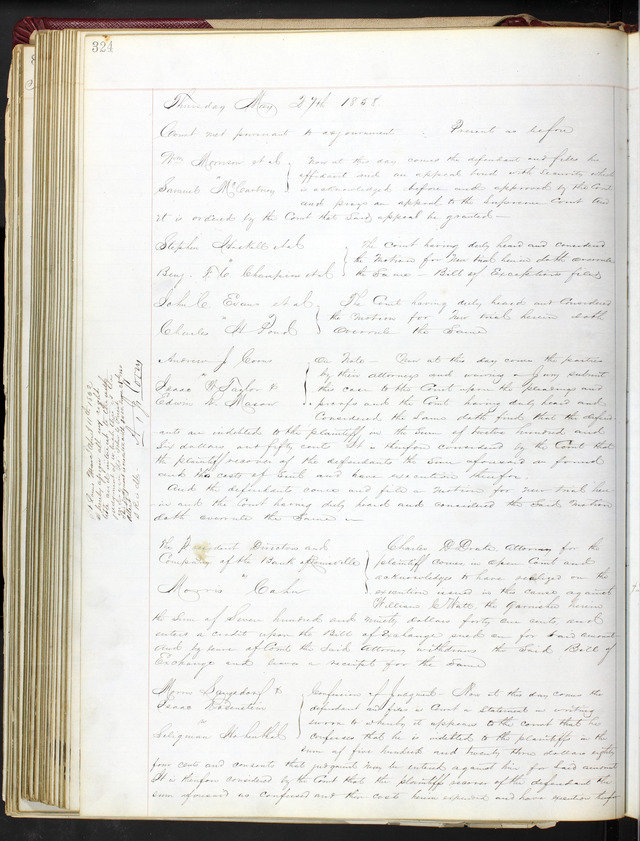 324
Thursday May 27th 1858
Court met pursuant to adjournment Present as before
Wm Morrison et al
vs
Samuel McCartney
Now at this day comes the defendant and files his
affidavit and an appeal bond with security which
is acknowledged before and approved by the Court
and prays an appeal to the Supreme Court and
it is ordered by the Court that said appeal be granted
Stephen Haskell et al
vs
Benj. F. C. Champion et al
The Court having duly heard and considered
the motion for New trial herein doth overrule
the Same - Bill of Exceptions filed
John C Evans et al
vs
Charles H Pond
The Court having duly heard and Considered
the motion for New trial herein doth
overrule the Same
Andrew J Coons
vs
Isaac H Taylor &
Edwin D. Mason
On Note - Now at this day come the parties
by their attorneys and waiving a Jury submit
this case to the Court upon the pleadings and
proofs and the Court having duly heard and
Considered the Same doth find that the defend
ants are indebted to the plaintiff in the Sum of twelve hundred and
Six dollars and fifty cents It is therefore considered by the Court that
the plaintiff recover of the defendants the Sum aforesaid so found
and the costs of Suit and have execution therefor.
And the defendants come and file a motion for New trial her
-in and the Court having duly heard and considered the Said motion
doth overrule the Same
The President Directors and
Company of the Bank
vs
Morris Cahn
Charles D Drake Attorney for the
plaintiff comes in open Court and
acknowledges to have realized on the
execution issued in this cause against
William C Wall the garnishee herein
the Sum of Seven hundred and ninety dollars forty one cents, and
enters a credit upon the Bill of Exchange sued on for said amount
and by leave of Court the Said Attorney withdraws the Said Bill of
Exchange and leaves a receipt for the Same
Isaac
vs
Seligman
Confession of Judgment - Now at this day comes the
defendant and files in Court a Statement in writing
sworn to whereby it appears to the court that he
confesses that he is indebted to the plaintiffs in the
sum of five hundred and twenty three dollars eighty
four cents and consents that judgment may be entered against him for said amount
It is therefore considered by the Court that the plaintiffs recover of the defendant the
sum aforesaid as confessed and their costs herein expended and have execution therefor